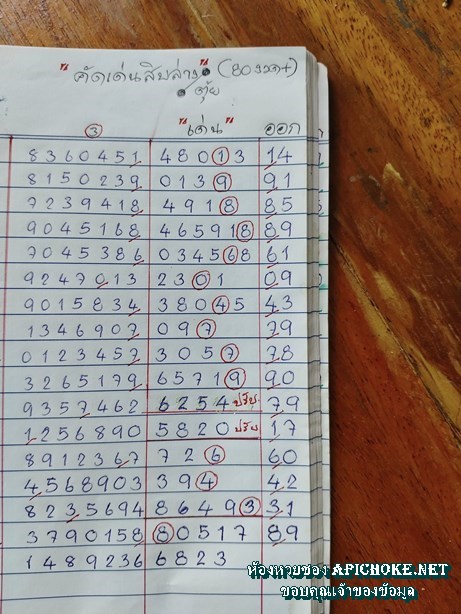 "คัดเด่นสิบล่าง" (80งวด+)
ตุ้ย
3 "เด่น" ออก
8360451 48013 14
8150239 0139 91
7239418 4918 85
9045168 465918 89
7045386 034568 61
9247013 2301 09
9015834 38045 43
1346907 097 79
0123457 3057 78
3265179 65719 90
9357462 6254 ปรับ 79
1256890 5820 ปรับ 17
8912367 726 60
4568903 394 42
8235694 86493 31
3790158 80517 89
1489236 6823
ห้องหวยซอง APICHOKE.NET
ขอบคุณเจ้าของข้อมูล